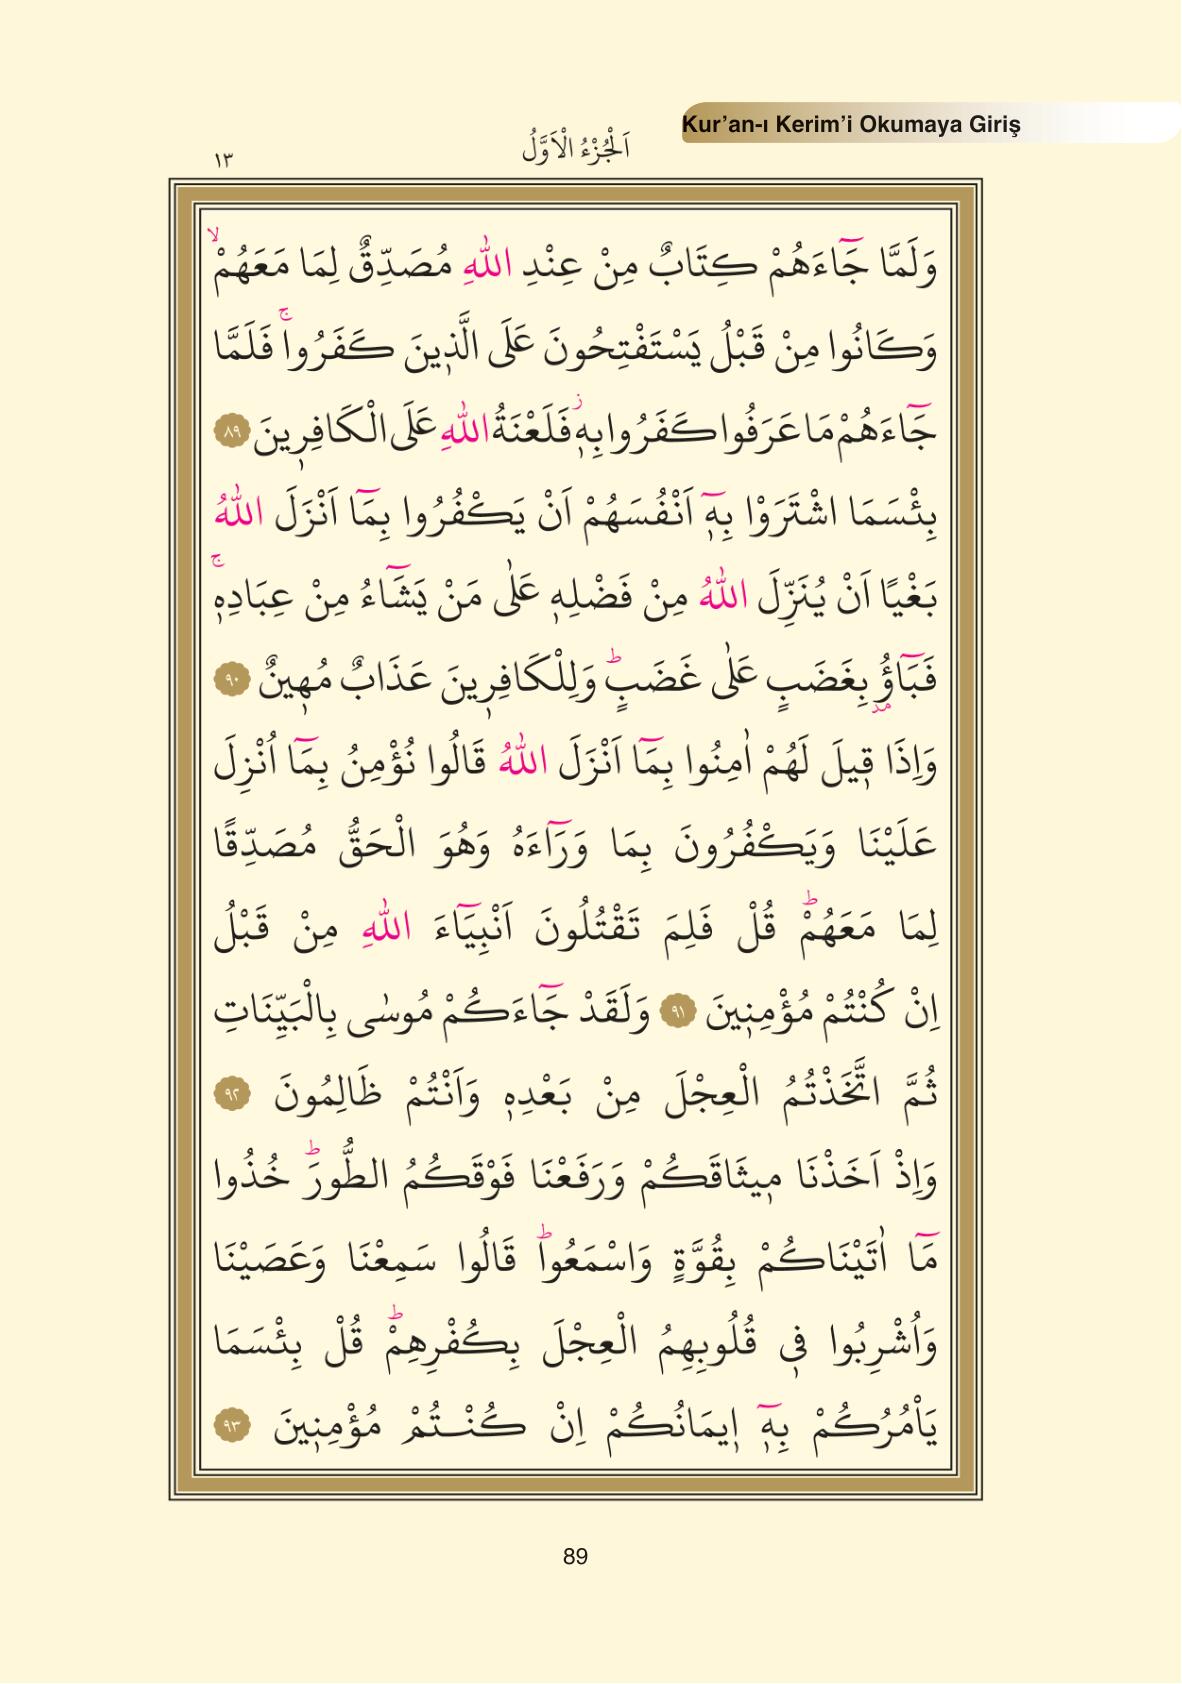 Kur’an-ı Kerim’i Okumaya Giriş
اَلْجُزْءُ الْاَوَّلُ
١٣
وَلَمَّا جَٓاءَهُمْ كِتَابٌ مِنْ عِنْدِ اللّٰهِ مُصَدِّقٌ لِمَا مَعَهُمْۙ
وَكَانُوا مِنْ قَبْلُ يَسْتَفْتِحُونَ عَلَى الَّذ۪ينَ كَفَرُواۚ فَلَمَّا
جَٓاءَهُمْ مَا عَرَفُوا كَفَرُوا بِه۪ۘ فَلَعْنَةُ اللّٰهِ عَلَى الْكَافِر۪ينَ ٨٩
بِئْسَمَا اشْتَرَوْا بِه۪ٓ اَنْفُسَهُمْ اَنْ يَكْفُرُوا بِمَٓا اَنْزَلَ اللّٰهُ
بَغْيًا اَنْ يُنَزِّلَ اللّٰهُ مِنْ فَضْلِه۪ عَلٰى مَنْ يَشَٓاءُ مِنْ عِبَادِه۪ۚ
فَبَٓاؤُ۫ بِغَضَبٍ عَلٰى غَضَبٍۜ وَلِلْكَافِر۪ينَ عَذَابٌ مُه۪ينٌ ٩٠
وَاِذَا ق۪يلَ لَهُمْ اٰمِنُوا بِمَٓا اَنْزَلَ اللّٰهُ قَالُوا نُؤْمِنُ بِمَٓا اُنْزِلَ
عَلَيْنَا وَيَكْفُرُونَ بِمَا وَرَٓاءَهُ وَهُوَ الْحَقُّ مُصَدِّقًا
لِمَا مَعَهُمْۜ قُلْ فَلِمَ تَقْتُلُونَ اَنْبِيَٓاءَ اللّٰهِ مِنْ قَبْلُ
اِنْ كُنْتُمْ مُؤْمِن۪ينَ ٩١ وَلَقَدْ جَٓاءَكُمْ مُوسٰى بِالْبَيِّنَاتِ
ثُمَّ اتَّخَذْتُمُ الْعِجْلَ مِنْ بَعْدِه۪ وَاَنْتُمْ ظَالِمُونَ ٩٢
وَاِذْ اَخَذْنَا م۪يثَاقَكُمْ وَرَفَعْنَا فَوْقَكُمُ الطُّورَۜ خُذُوا
مَٓا اٰتَيْنَاكُمْ بِقُوَّةٍ وَاسْمَعُواۜ قَالُوا سَمِعْنَا وَعَصَيْنَا
وَاُشْرِبُوا ف۪ي قُلُوبِهِمُ الْعِجْلَ بِكُفْرِهِمْۜ قُلْ بِئْسَمَا
يَاْمُرُكُمْ بِه۪ٓ ا۪يمَانُكُمْ اِنْ كُنْتُمْ مُؤْمِن۪ينَ ٩٣
89